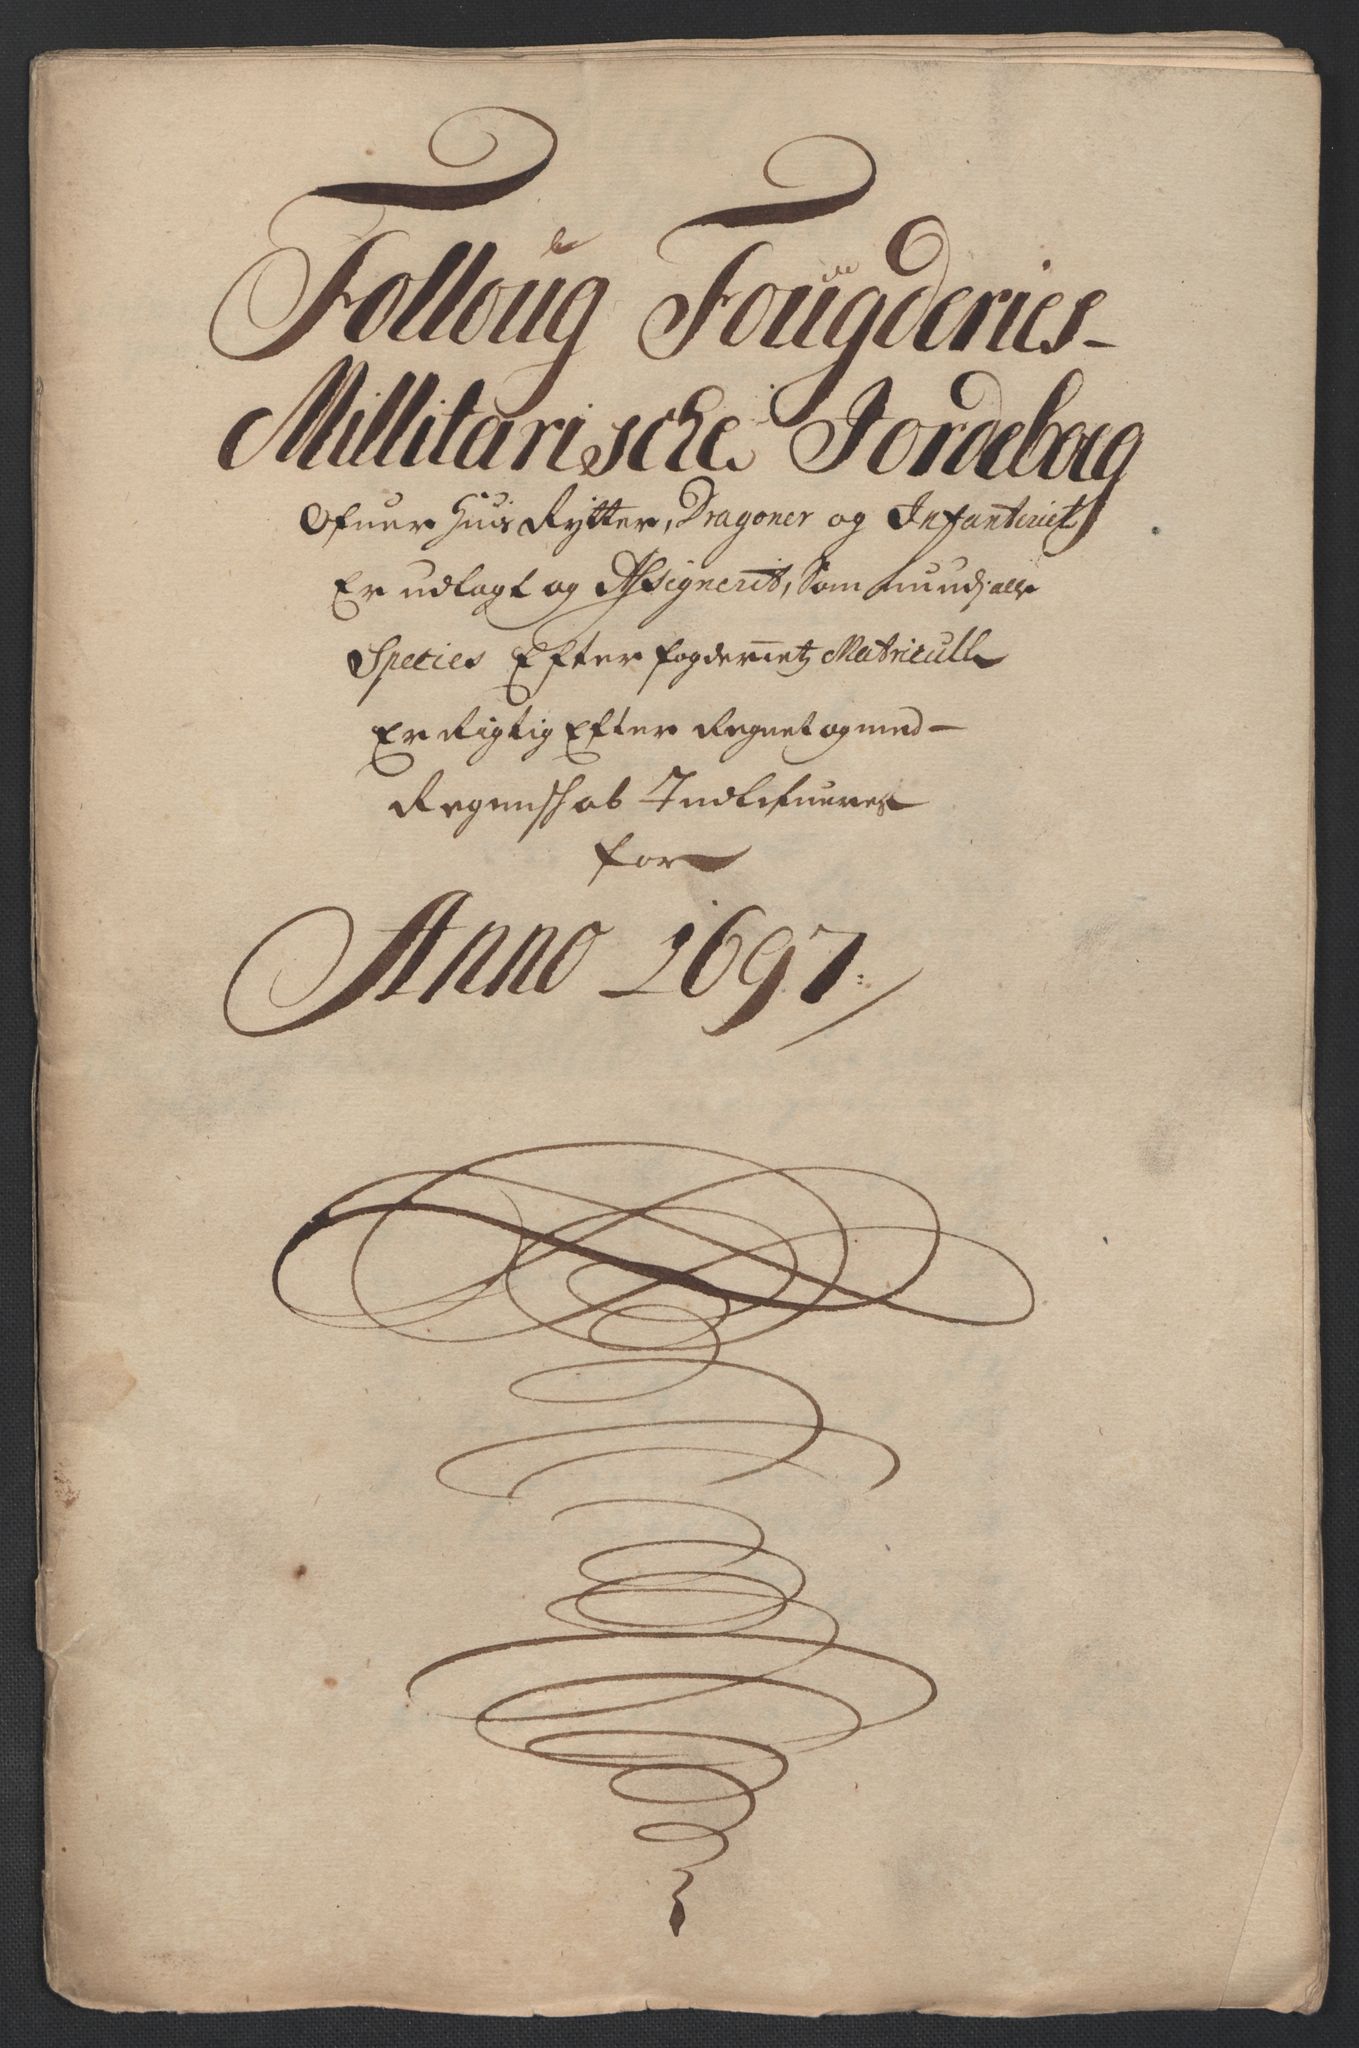 Folloug Fougderies-
Millitarische Jordebog
Ofuer Huis Rytter, Dragoner og Infanteriet
Er udlagt og Assignerit, Som mued alle
Species Efter fogderietz Matricull
Er Rigtig Efter Regnet og med-
Regenskab Indlefueret
for
Anno 1697